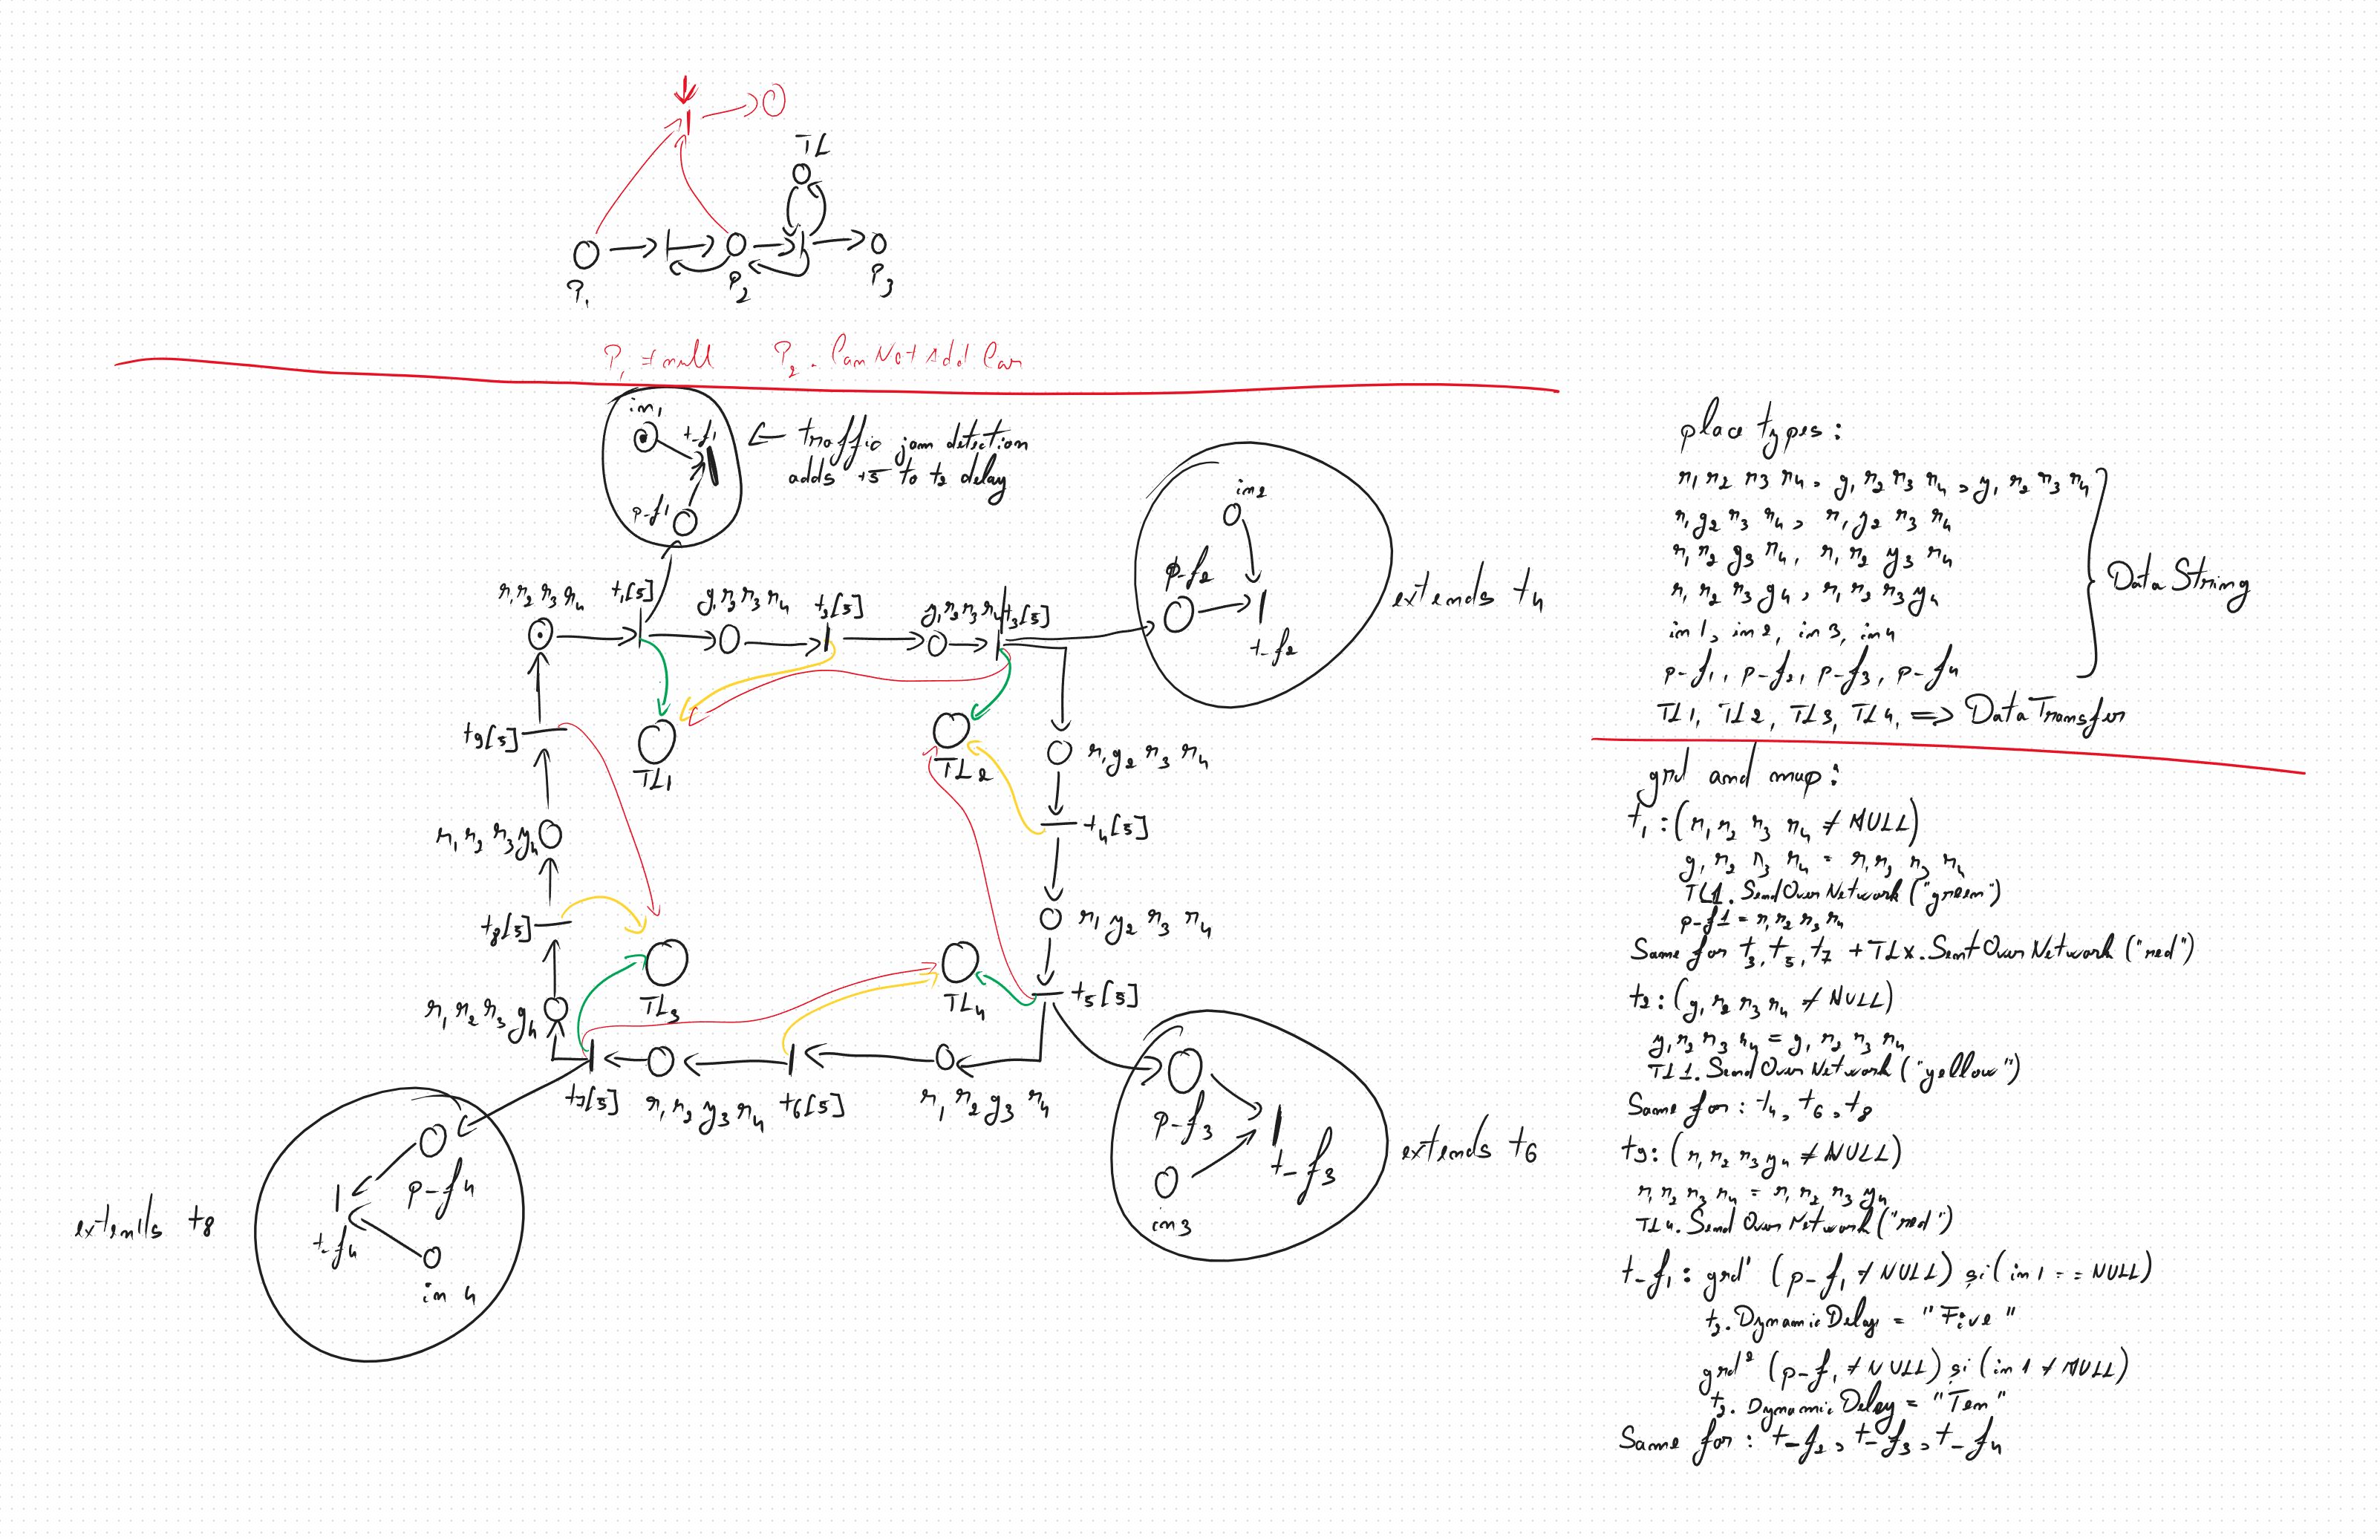 TL
P1
P2
P3
P1 ≠ null P2 . Can Not Add Car
in1
t-f1
p-f1
← traffic jam detection
adds +5 to t2 delay
in2
p-f2
t-f2
extends t4
r1r2 r3 r4
t1[5]
g1r2r3 r4
t2[5]
y1r2r3r4
t3[5]
t9[5]
TL1
TL2
r1g2 r3 r4
r1 r2 r3y4
t4[5]
t8[5]
r1 y2 r3 r4
r1 r2 r3 g4
TL3
TL4
t5[5]
t7[5]
r1 r2 y3 r4
t6[5]
r1 r2 g3 r4
p-f3
t-f3
in3
extends t6
p-f4
t-f4
in 4
extends t8
place types:
r1 r2 r3 r4, g1 r2 r3 r4, y1 r2 r3 r4
r1g2 r3 r4, r1 y2 r3 r4
r1 r2 g3 r4, r1 r2 y3 r4
r1 r2 r3 g4, r1 r2 r3 y4
in1, in2, in3, in4
p-f1, p-f2, p-f3, p-f4
Data String
TL1, TL2, TL3, TL4, => DataTransfer
grd and map:
t1:(r1 r2 r3 r4 ≠ NULL)
g1 r2 r3 r4 = r1 r2 r3 r4
TL1. SendOverNetwork ("green")
p-f1 = r1 r2 r3 r4
Same for t3, t5, t7 + TLx. Sent Over Network ("red")
t2: (g1 r2 r3 r4 ≠ NULL)
y1 r2 r3 r4 = g1 r2 r3 r4
TL1. Send Over Network ("yellow")
Same for: t4, t6, t8
t9: (r1 r2 r3 y4 ≠ NULL)
r1 r2 r3 r4 = r1 r2 r3 y4
TL4. Send Over Network ("red")
t-f1: grd1 (p-f1 ≠ NULL) și (in1 == NULL)
t2. Dynamic Delay = "Five"
grd2 (p-f1 ≠ NULL) și (in1 ≠ NULL)
t2. Dynamic Delay = "Ten"
Same for: t-f2, t-f3, t-f4